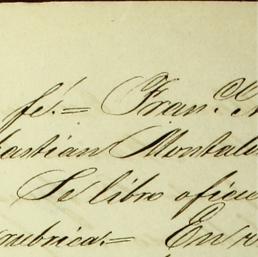 fé.= Fran.co
bastian Montal
Se libro oficio
rubrica.= En